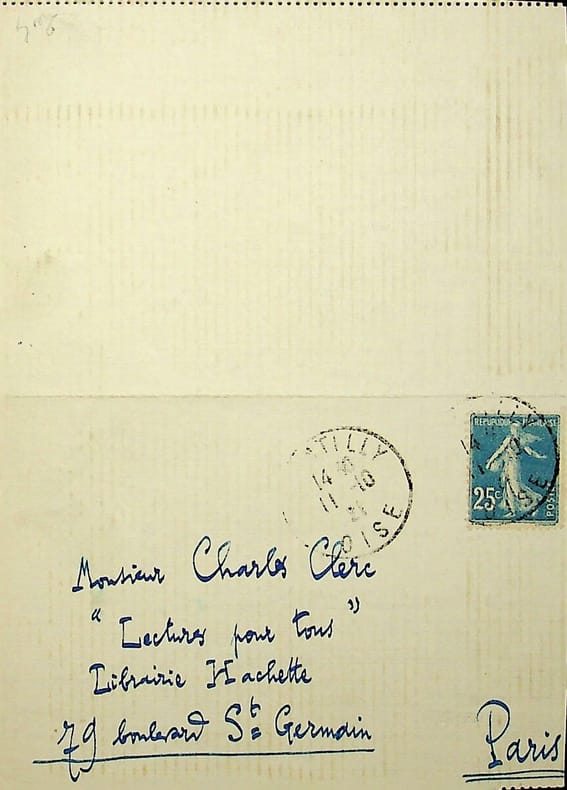 RÉPUBLIQUE FRANÇAISE
25c
POSTES
TILLY
14
11 -10
OISE
Monsieur Charles Clerc
"Lectures pour tous"
Librairie Hachette
79 boulevard St Germain
Paris